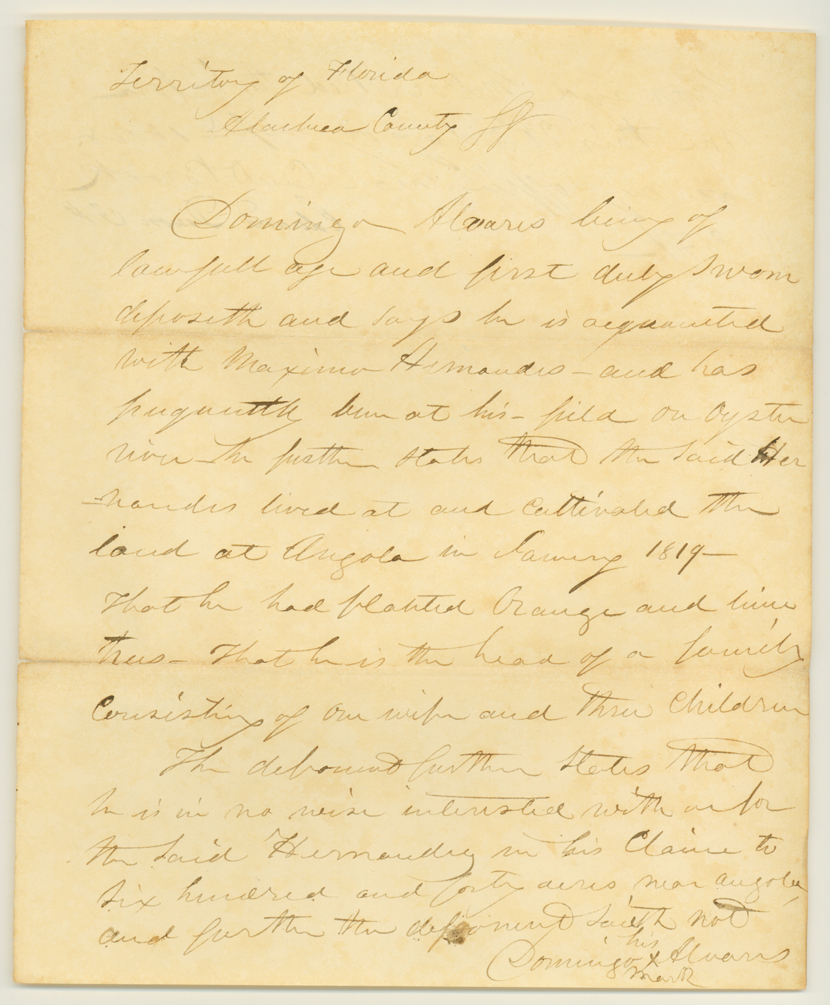 Territory of Florida
Alachua County SS
Domingo Alvaris being of
lawfull age and first duly Sworn
deposeth and says he is acquainted
with Maximo Hernandis – and has
frequently been at his – field on Oyster
river – he further states that the said Her
-nandis lived at and cultivated the
land at Angola in January 1819 –
That he had planted Orange and lime
trees – That he is the head of a family
Consisting of one wife and three children
The deponent further states that
he is in no wise interested with or for
the said Hernandez in his Claim to
six hundred and forty acres near angola,
and further the deponent saith not
his
Domingo x Alvaris
mark